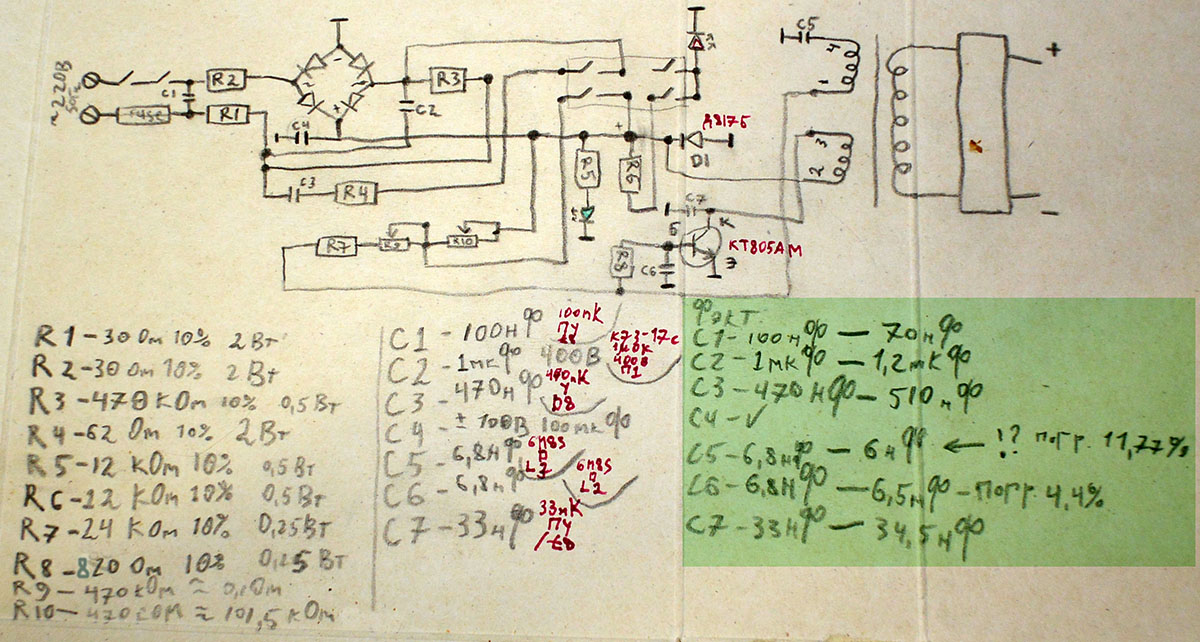 C5
4
1
~220В
50Гц
R2
R3
+
C1
C2
fuse
R1
C4
+
Д817Б
D1
3
2
R5
R6
C3
R4
C7
К
Б
КТ805АМ
Э
R7
R9
R10
R8
C6
−
R1 – 30 Ом 10% 2 Вт
R2 – 30 Ом 10% 2 Вт
R3 – 470 КОм 10% 0,5 Вт
R4 – 62 Ом 10% 2 Вт
R5 – 12 КОм 10% 0,5 Вт
R6 – 12 КОм 10% 0,5 Вт
R7 – 24 КОм 10% 0,25 Вт
R8 – 820 Ом 10% 0,25 Вт
R9 – 470 кОм ≈ 0,1 Ом
R10 – 470 кОм ≈ 101,5 кОм
C1 – 100нф 100nK
ПУ
C2 – 1мкф 400В К73-17с
1м0К
400В
П1
C3 – 470нф 400nK
У
D8
C4 – ± 100В 100мкф
C5 – 6,8нф 6n8S
L2
C6 – 6,8нф 6n8S
L2
C7 – 33нф 33nK
ПУ
Факт.
C1 – 100нф — 70нф
C2 – 1мкф — 1,2мкф
C3 – 470нф — 510нф
C4 – ✓
C5 – 6,8нф — 6нф ← !? погр. 11,77%
C6 – 6,8нф — 6,5нф – погр 4,4%
C7 – 33нф — 34,5нф